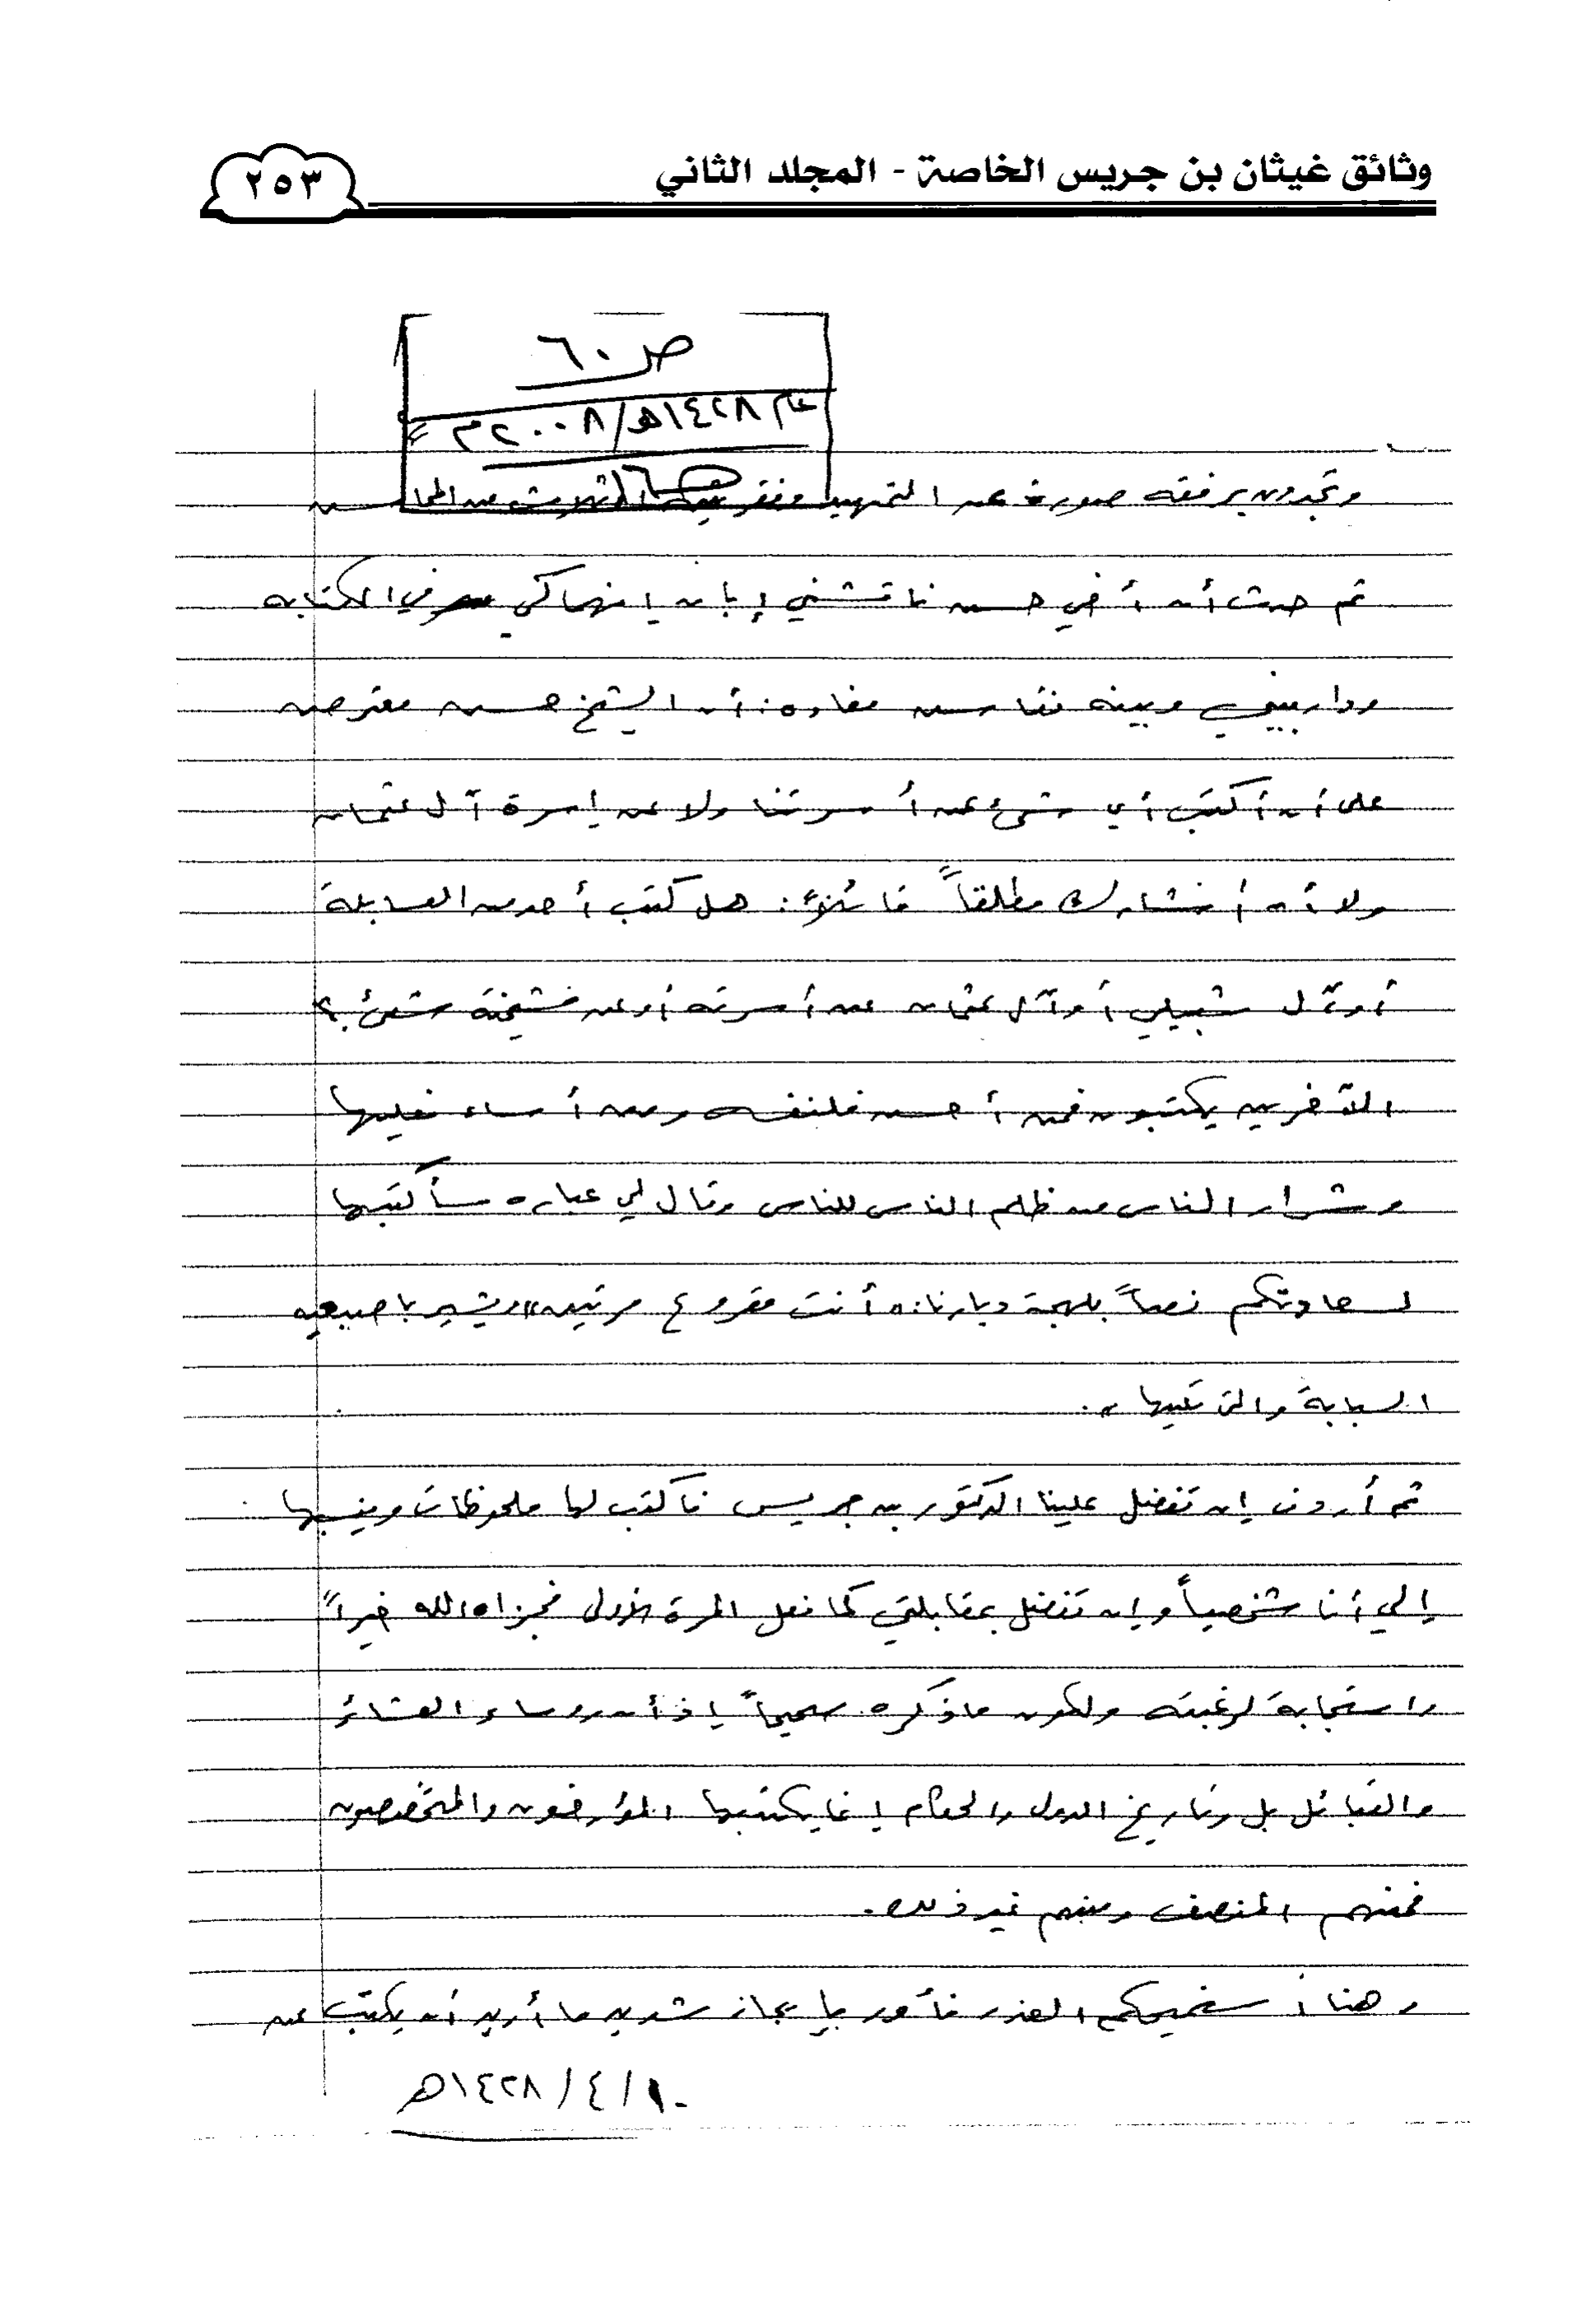 وثائق غيثان بن جريس الخاصة - المجلد الثاني
٢٥٣
ص ٦٠
عام ١٤٢٨هـ/٢٠٠٨م
وتجدون برفقه صورة عن التمهيد من المحاسن
ثم حدث أن أخي حسن ناقشني إبان إنهماكي في الكتابه
ودار بيني وبينه نقاش مفاده: أن الشيخ حسن معترض
على أن أكتب أي شيء عن أسرتنا ولا عن إسرة آل عثمان
ولا أن أشارك مطلقاً قائلاً: هل كتب أحد من العسابلة
أو آل شبيلي أو آل عثمان عن أسرته أو عن مشيخته شيئ؟
الآخرين يكتبون فمن أحسن فلنفسه ومن أساء فعليها
وشرار الناس من ظلم الناس للناس وقال لي عباره سأكتبها
لسعادتكم نصاً بلهجة ديارنا: أنت مقروع مرتين" ويشير باصبعيه
السبابة والتي تليها".
ثم أردف إن تفضل علينا الدكتور بن جريس فاكتب لها ملحوظات وينسبها
إلي أنا شخصياً وإن تفضل بمقابلتي كما فعل المرة الأولى فجزاه الله خيراً
واستجابة لرغبته ولكون ماذكره صحيحاً إذ أن روساء العشائر
والقبائل بل وتاريخ الدول والحكام إنما يكتبها المؤرخون والمتخصصون
فمنهم المنصف ومنهم غير ذلك.
وهنا أستميحكم العذر فأورد بإيجاز شديد ما أريد أن يكتب عن
١٠/٤/١٤٢٨هـ